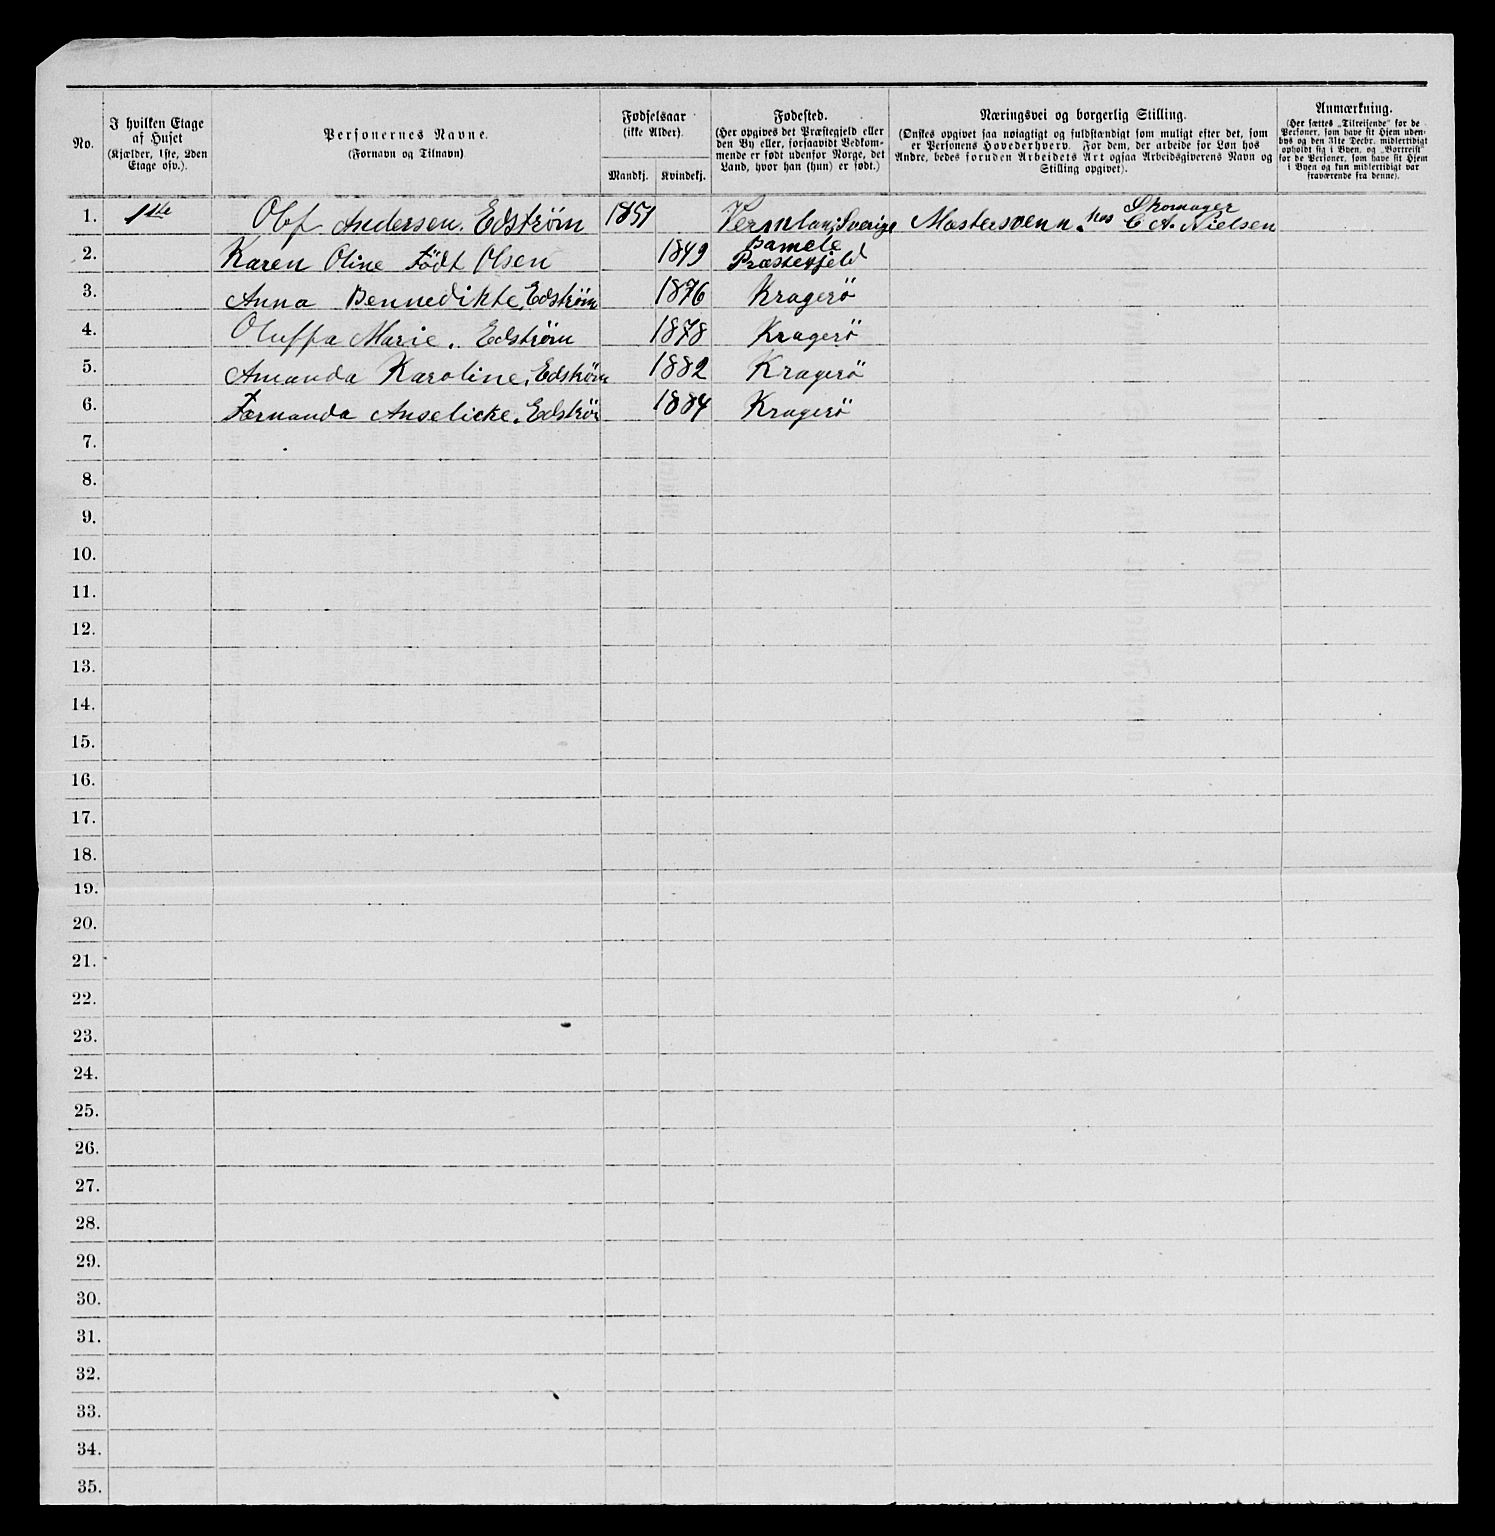 No.
I hvilken Etage af Huset (Kjælder, 1ste, 2den Etage osv.).
Personernes Navne. (Fornavn og Tilnavn)
Fødselsaar (ikke Alder).
Mandkj. Kvindekj.
Fødested. (Her opgives det Præstegjeld eller den By eller, forsaavidt Vedkommende er født udenfor Norge, det Land, hvor han (hun) er født.)
Næringsvei og borgerlig Stilling. (Ønskes opgivet saa nøiagtigt og fuldstændigt som muligt efter det, som er Personens Hovederhverv. For dem, der arbeide for Løn hos Andre, bedes foruden Arbeidets Art ogsaa Arbeidsgiverens Navn og Stilling opgivet).
Anmærkning. (Her sættes „Tilreisende" for de Personer, som have sit Hjem udenbys og den 31te Decbr. midlertidigt opholdt sig i Byen, og „Bortreist" for de Personer, som have sit Hjem i Byen og kun midlertidigt var fraværende fra denne).
1. 1ste Olof Andersen. Edström 1851 Vermlan, Sverige Mestersvenn. hos Skomager C A. Nielsen
2. Karen Oline Födt Olsen 1849 Bamele Præstegjeld
3. Anna Bennedikte, Edström 1876 Kragerö
4. Oluffa Marie. Edström 1878 Kragerö
5. Amanda Karoline, Edström 1882 Kragerö
6. Fernanda Anselicke. Edströ 1884 Kragerö
7.
8.
9.
10.
11.
12.
13.
14.
15.
16.
17.
18.
19.
20.
21.
22.
23.
24.
25.
26.
27.
28.
29.
30.
31.
32.
33.
34.
35.